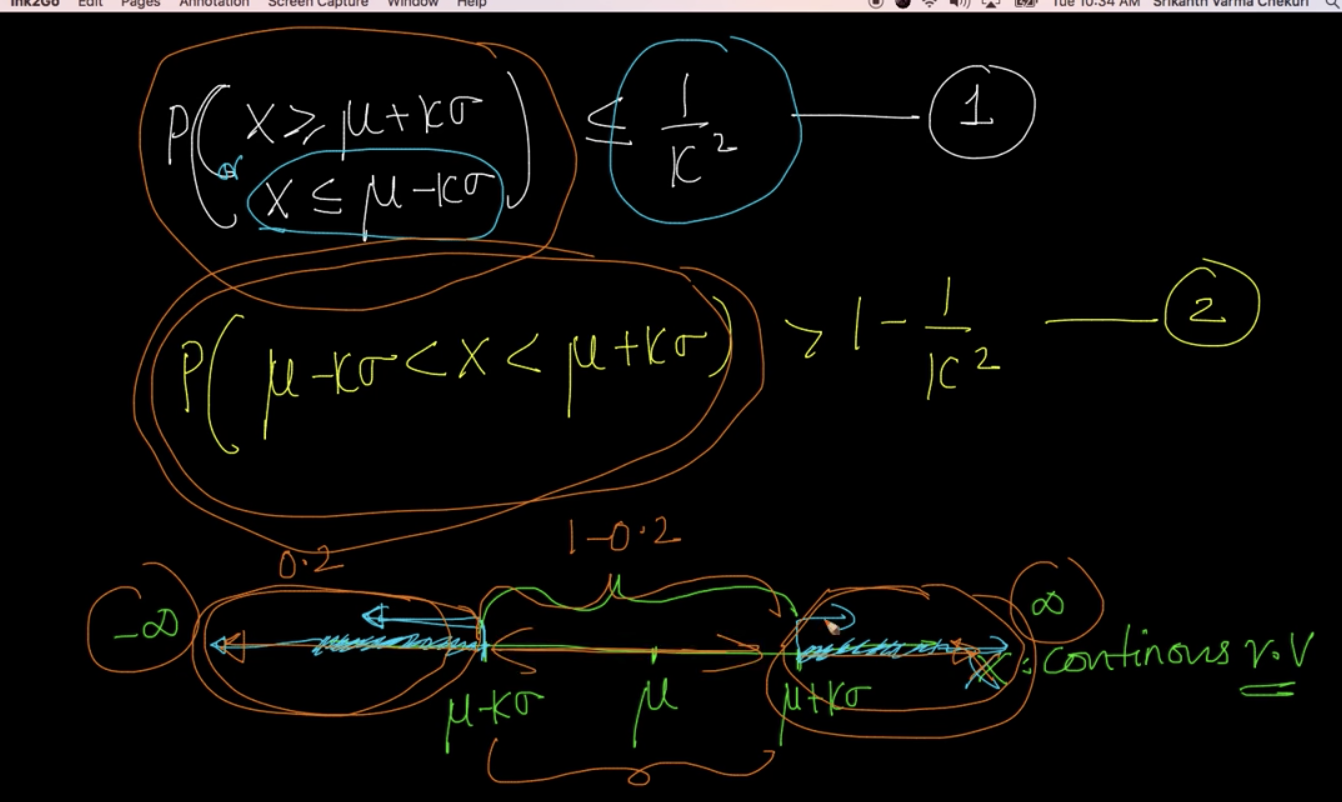 Ink2Go Edit Pages Annotation Screen Capture Window Help Tue 10:34 AM Srikanth Varma Chekuri
P( X ≥ μ+kσ
or
X ≤ μ-kσ ) ≤ 1/k² —— 1
P( μ-kσ < X < μ+kσ ) > 1 - 1/k² —— 2
0.2 1-0.2
-∞ μ ∞
X : continous r.v
μ-kσ μ μ+kσ